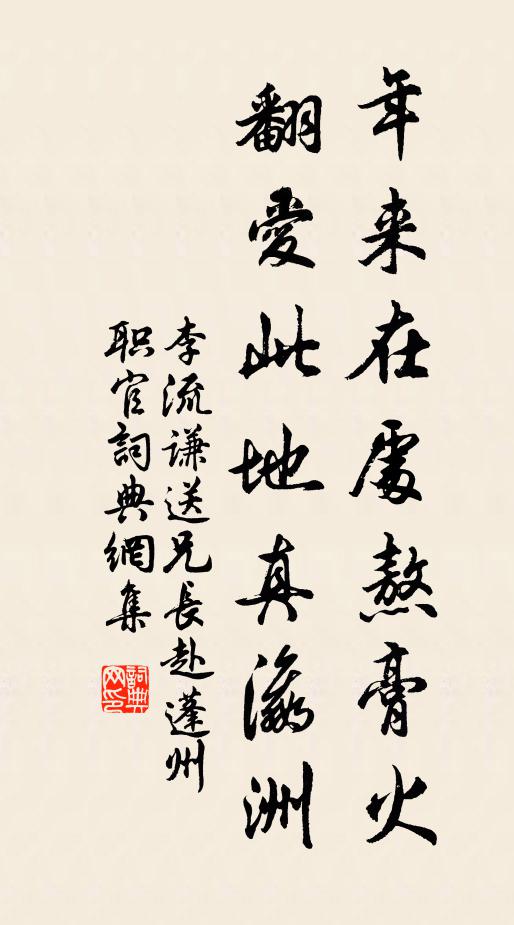 年来在處熬膏火
翻愛此地真瀛洲
李流謙送兄長赴蓬州
职官詞典網集
詞典网印